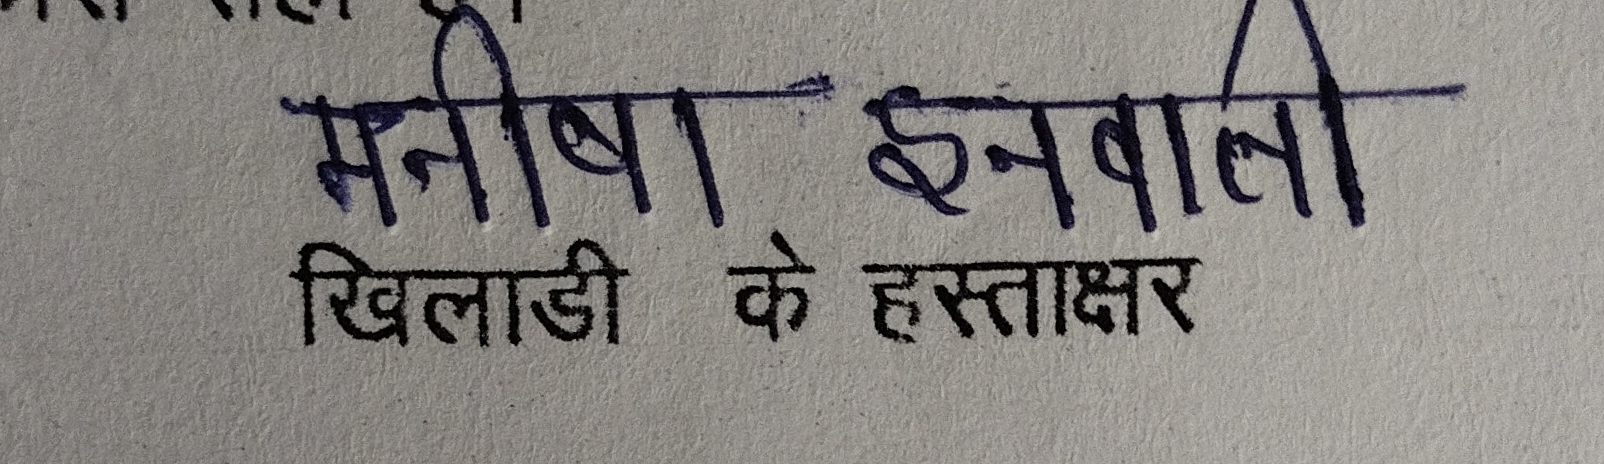 मनीषा इनवाती
खिलाडी के हस्ताक्षर